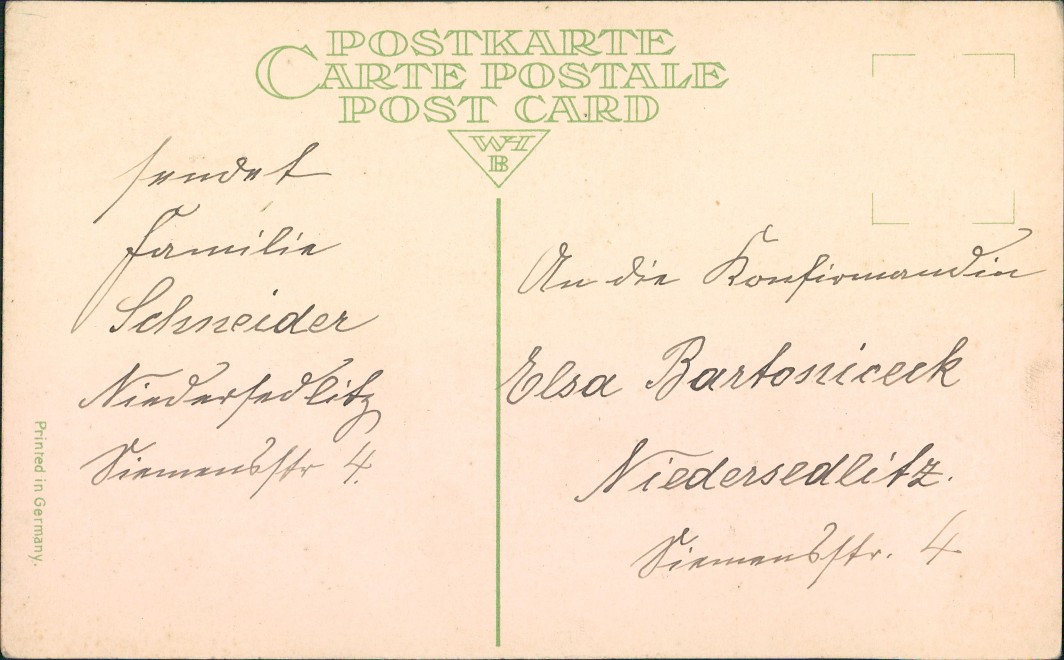 POSTKARTE
CARTE POSTALE
POST CARD
WH
B
sendet
Familie
Schneider
Niedersedlitz
Siemensstr 4.
An die Konfirmandin
Elsa Bartoniceck
Niedersedlitz.
Siemensstr. 4
Printed in Germany.